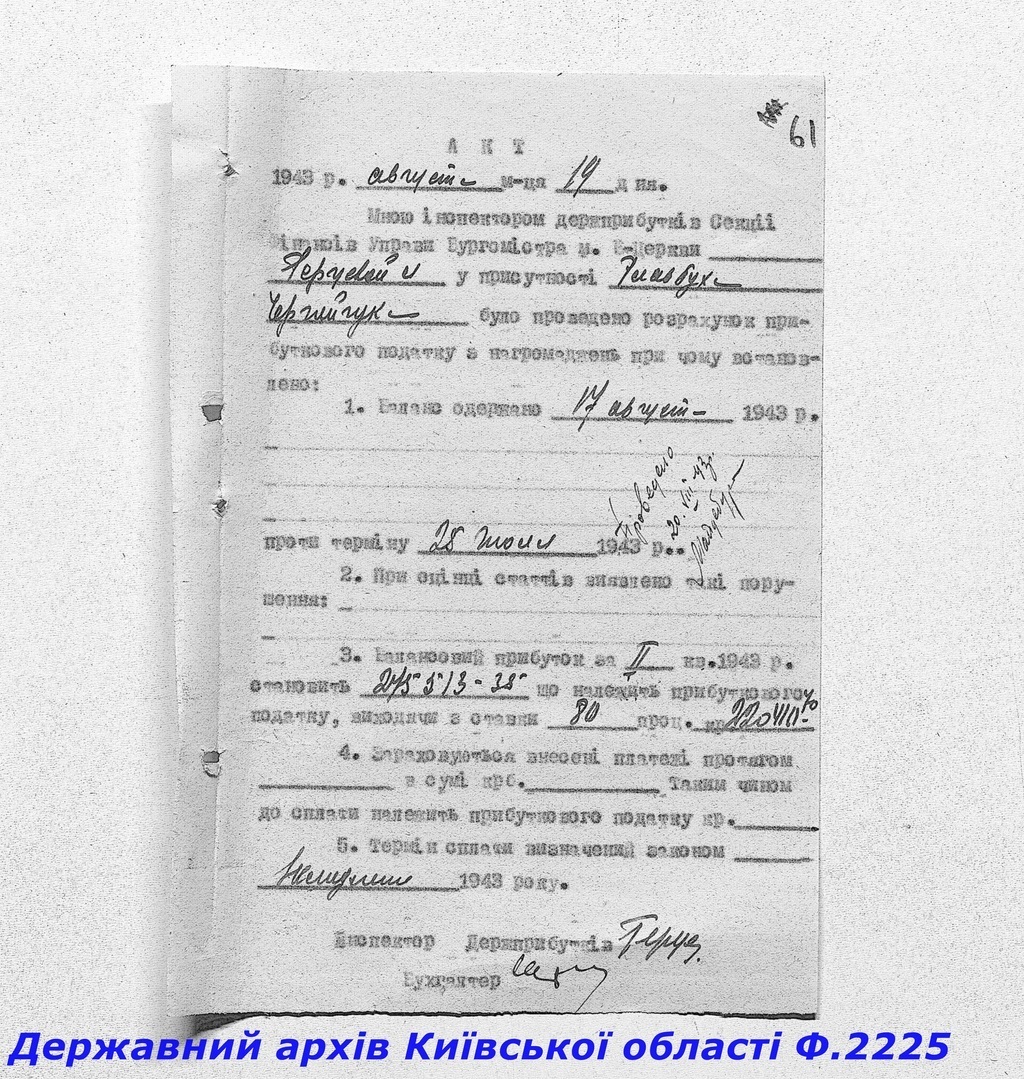 61
АКТ
1943 р. август м-ця 19 дня.
Мною інспектором держприбутків Секції
Фінансів Управи Бургомістра м. Б-Церкви
у присутності Главбух
було проведено розрахунок при-
буткового податку з нагромаджень при чому встанов-
лено:
1. Баланс одержано 17 август 1943 р.
Проведено
20.VIII 43р.
проти терміну 28 июля 1943 р..
2. При оцінці статтів виявлено такі пору-
шення:
3. Балансовий прибуток за II кв.1943 р.
становить 275513-38 що належить прибуткового
податку, виходячи з ставки 80 проц. кр
4. Зараховуються внесені платежі протягом
в сумі крб. Таким чином
до сплати належить прибуткового податку кр.
5. Термін сплати визначений законом
1943 року.
Інспектор Держприбутків
Бухгалтер
Державний архів Київської області Ф.2225